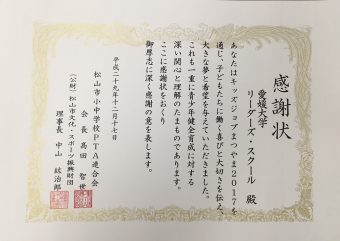 感謝状
愛媛大学
リーダーズ・スクール 殿
あなたはキッズジョブまつやま2017を
通じ、子どもたちに働く喜びと大切さを伝え、
大きな夢と希望を与えていただきました。
これも一重に青少年健全育成に対する
深い関心と理解のたまものであります。
ここに感謝状をおくり
御厚志に深く感謝の意を表します。
平成二十九年十二月十七日
松山市小中学校PTA連合会
会長 高田 智世
(公財)松山市文化・スポーツ振興財団
理事長 中山 紘治郎